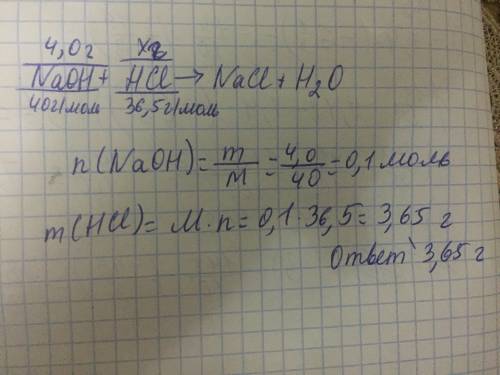 4,0г xг
NaOH + HCl → NaCl + H₂O
40г/моль 36,5г/моль
n(NaOH) = m/M = 4,0/40 = 0,1 моль
m(HCl) = M · n = 0,1 · 36,5 = 3,65 г
Ответ` 3,65 г